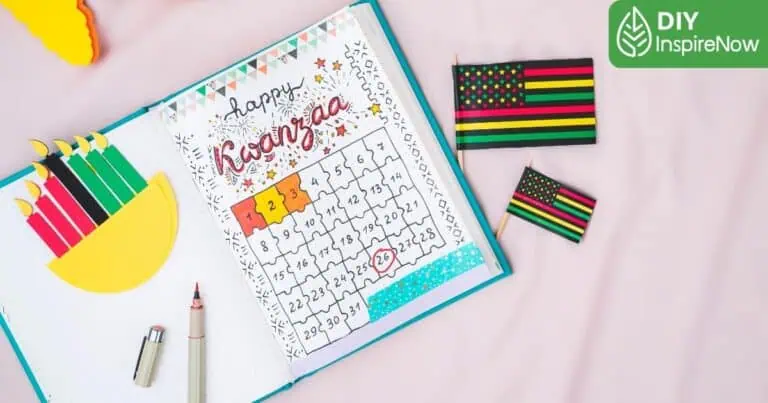 DIY
InspireNow
happy
Kwanzaa
1 2 3 4 5 6 7
8 9 10 11 12 13 14
15 16 17 18 19 20 21
22 23 24 25 26 27 28
29 30 31